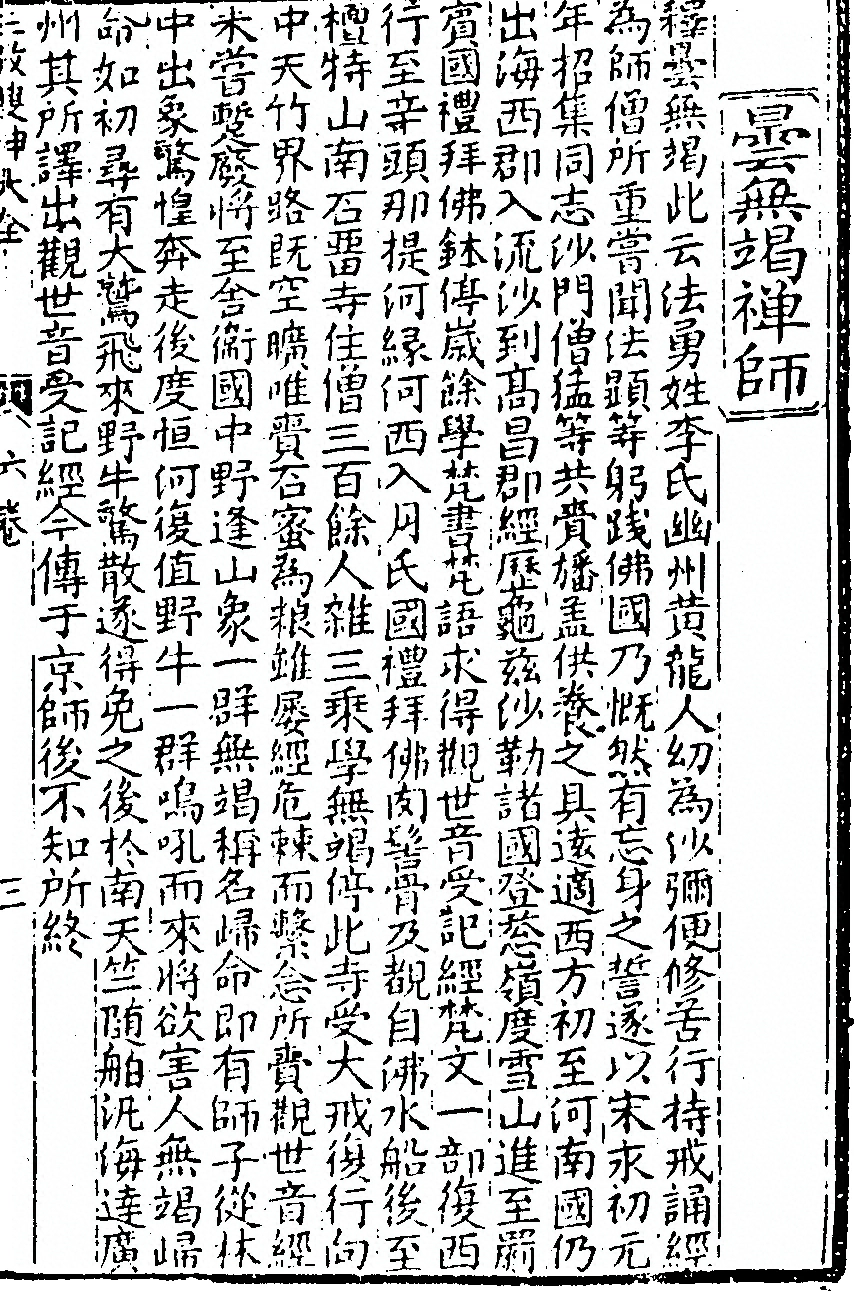 曇無竭禅師
釋曇無竭此云法勇姓李氏幽州黄龍人幼為沙彌便修苦行持戒誦經
為師僧所重嘗聞法顕等躬践佛國乃慨然有忘身之誓遂以宋永初元
年招集同志沙門僧猛等共賫旛盖供養之具遠適西方初至河南國仍
出海西郡入流沙到髙昌郡經歷龜兹沙勒諸國登葱嶺度雪山進至罽
賓國禮拜佛鉢停歲餘學梵書梵語求得觀世音受記經梵文一部復西
行至辛頭那提河縁河西入月氏國禮拜佛肉髻骨及覩自沸水船後至
檀特山南石畱寺住僧三百餘人雜三乘學無竭停此寺受大戒復行向
中天竹界路既空曠唯賫石蜜為粮雖屡經危棘而繫念所賫觀世音經
未嘗暫廢將至舍衞國中野逢山象一群無竭稱名歸命即有師子從林
中出象驚惶奔走後度恒河復值野牛一群鳴吼而來將欲害人無竭歸
命如初尋有大鷲飛來野牛驚散遂得免之後於南天竺随舶汎海達廣
州其所譯出觀世音受記經今傳于京師後不知所終
搜神大全
六巻
三